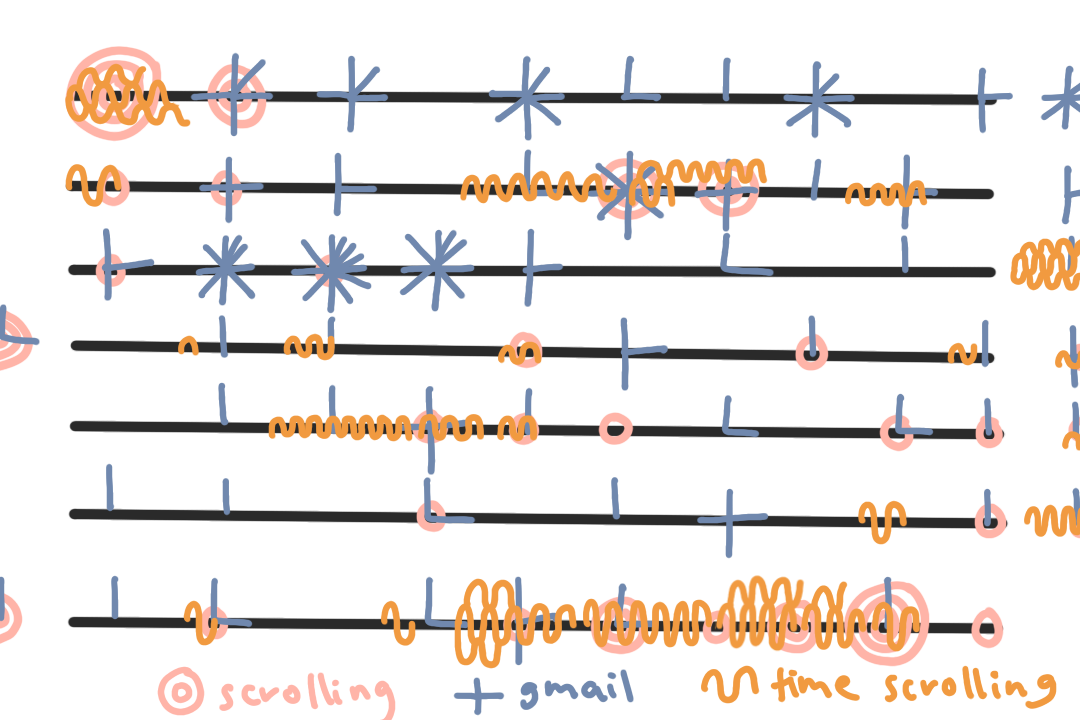 scrolling gmail time scrolling